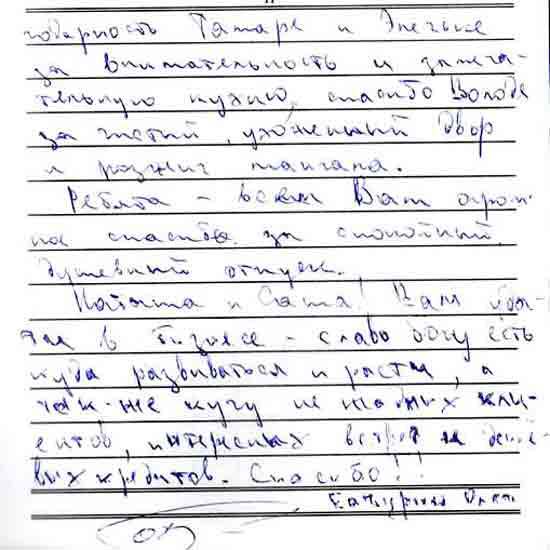 годарность Тамаре и Эленьке
за внимательность и замеча-
тельную кухню, спасибо Володе
за чистый, ухоженный двор
и розжиг мангала.
Ребята - всем Вам огром-
ное спасибо за спокойный,
душевный отпуск.
и Саша! Вам уда-
чи в бизнесе - слава богу есть
куда развиваться и расти, а
так-же кучу не жадных кли-
ентов, интересных встреч и деше-
вых кредитов. Спасибо!!